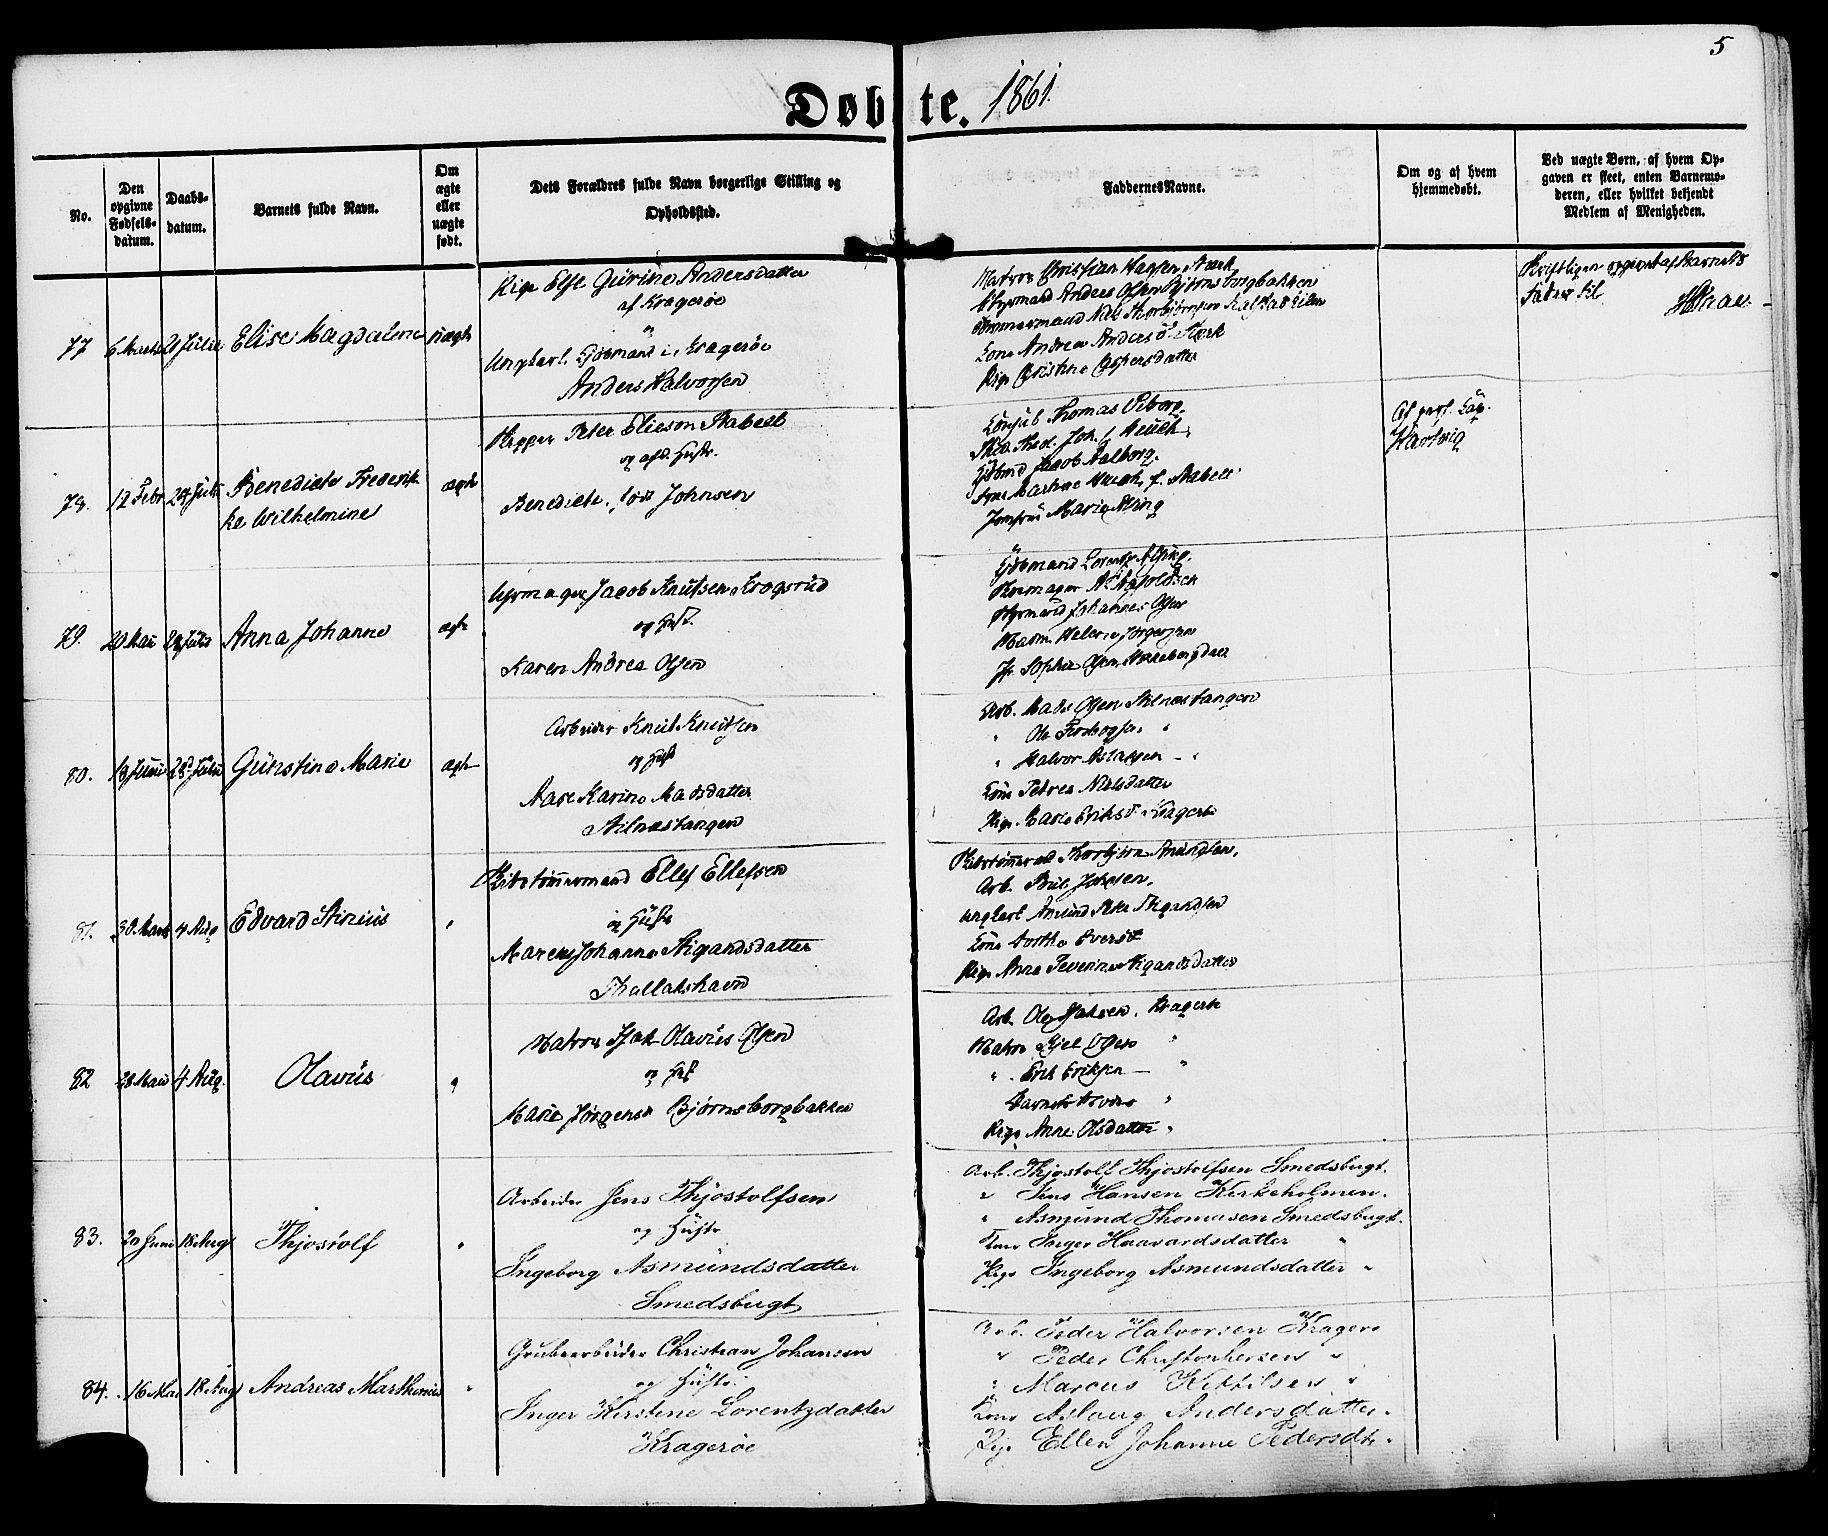 5
Døbte. 1861.
No.
Den opgivne Fødsels-datum.
Daabs-datum.
Barnets fulde Navn.
Om ægte eller uægte født.
Dets Forældres fulde Navn borgerlige Stilling og
Opholdssted.
Faddernes Navne.
Om og af hvem
hjemmedøbt.
Ved uægte Børn, af hvem Op-
gaven er skeet, enten Barnemo-
deren, eller hvilket bekjendt
Medlem af Menigheden.
77 6 Marts 21 Julie Elise Magdalene uægte
Pige Else Gurine Andersdatter
af Kragerøe
Ungkarl, Kjøbmand i Kragerøe
Anders Halvorsen
Matros Christian Hansen
Styrmand Anders Olsen Bjørnsborgbakken
Tømmermand Niels Thorbjørnsen
Kone Andrea Andersd.
Pige Christine Caspersdatter
Skriftligen opgivet af Barnets
Fader til
78. 12 Febr 24 Juli Benedicte Frederik-
ke Wilhelmine ægte
Skipper Peter Elieson Stabell
og afd. Hustr.
Benedicte, født Johnsen
Consul Thomas Viborg.
Stud. Theol. Joh. Heuch.
Kjøbmd Jacob Aalborg.
Frue Martine Heuch, f. Stabell
Jomfru Marie
Af
Hartvig
79. 20 Mai 28 Julie Anna Johanne ægte
Uhrmager Jacob Knutsen Krogsrud
og Hust.
Karen Andrea Olsen
Kjøbmand Lorentz
Styrmand Johannes Olsen
Madm. Helene Jørgensen
Jf. Sophie Olsen
80. 18 Juni 28 Julie Gunstine Marie ægte
Arbeider Knut Knutsen
og Hust
Aase Karine Madsdatter
Stilnæstangen
Arb. Mads Olsen Stilnæstangen
" Ole "
" Halvor Aslaksen — "
Kone Petrea Nielsdatter
Pige Maren Eriksd. Kragerø
81. 30 Marts 4 Aug Edvard Stinius "
Skibstømmermand Ellef Ellefsen
og Hustr
Maren Johanne Stigandsdatter
Thallakshavn
Skibstømmermand Thorbjørn Amundsen.
Arb.
Ungkarl Amund Stigandsen
Kone Dorthe Eversd
Pige Anne Severine Stigandsdatter
82 28 Mai 4 Aug. Olavus "
Matros Isak Olavus Olsen
og Hust
Maria Jørgensd. Bjørnsborgbakken
Arb. Ole Isaksen, Kragerø
Matros Kjel Olsen "
" Erik Eriksen — "
Barnets Moder "
Pige Anne Olsdatter "
83. 20 Juni 18 Aug Thjostolf "
Arbeider Jens Thjostolfsen
og Hustr
Ingeborg Asmundsdatter
Smedsbugt
Arb. Thjostolf Thjostolfsen Smedsbugt.
" Jens Hansen Kirkeholmen.
" Asmund Thomasen Smedsbugt.
Kone Inger Haavardsdatter "
Pige Ingeborg Asmundsdatter "
84. 16 Mai 18 Aug Andreas Marthinius "
Grubearbeider Christian Johansen
og Hustr.
Inger Kirstine Lorentzdatter
Kragerøe
Arb. Peder Halvorsen Kragerø
" Peder Christophersen "
" Marcus Kittilsen "
Kone Aslaug Andersdatter "
Pige Ellen Johanne Pedersdtr "